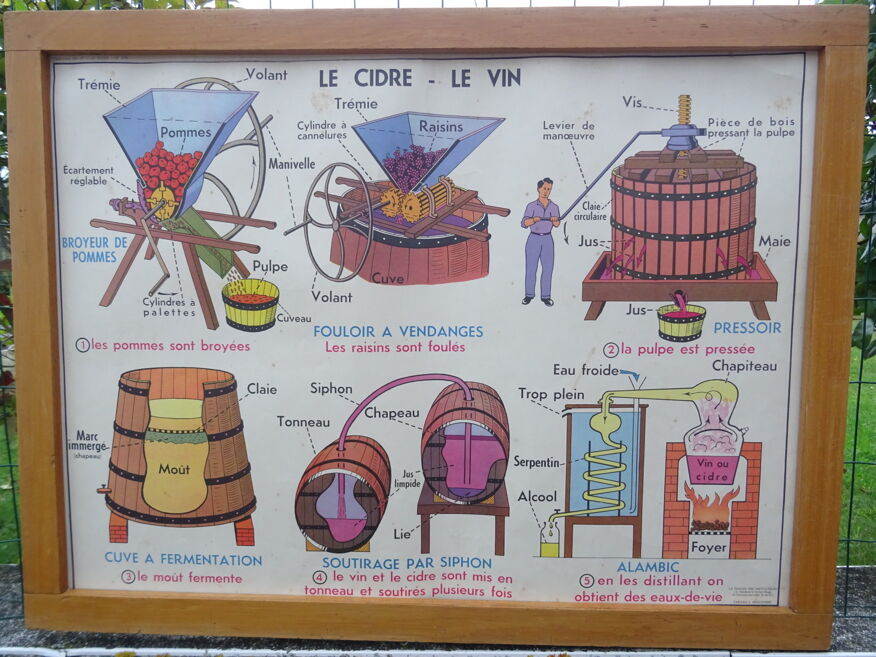 LE CIDRE - LE VIN
Trémie
Volant
Pommes
Écartement
réglable
Manivelle
BROYEUR DE
POMMES
Pulpe
Cylindres à
palettes
Cuveau
① les pommes sont broyées
Trémie
Cylindre à
cannelures
Raisins
Cuve
Volant
FOULOIR A VENDANGES
Les raisins sont foulés
Vis
Levier de
manœuvre
Pièce de bois
pressant la pulpe
Claie
circulaire
Jus
Maie
Jus
PRESSOIR
② la pulpe est pressée
Claie
Marc
immergé
(chapeau)
Moût
CUVE A FERMENTATION
③ le moût fermente
Siphon
Chapeau
Tonneau
Jus
limpide
Lie
SOUTIRAGE PAR SIPHON
④ le vin et le cidre sont mis en
tonneau et soutirés plusieurs fois
Eau froide
Chapiteau
Trop plein
Serpentin
Vin ou
cidre
Alcool
Foyer
ALAMBIC
⑤ en les distillant on
obtient des eaux-de-vie